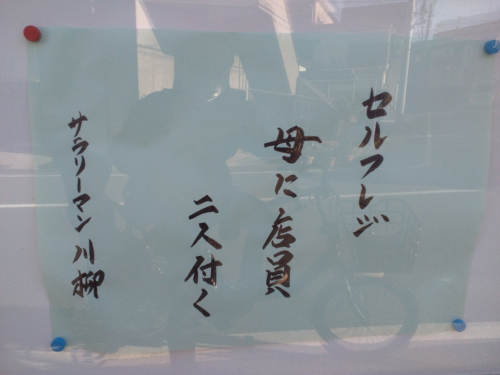 セルフレジ
母に店員
二人付く
サラリーマン川柳